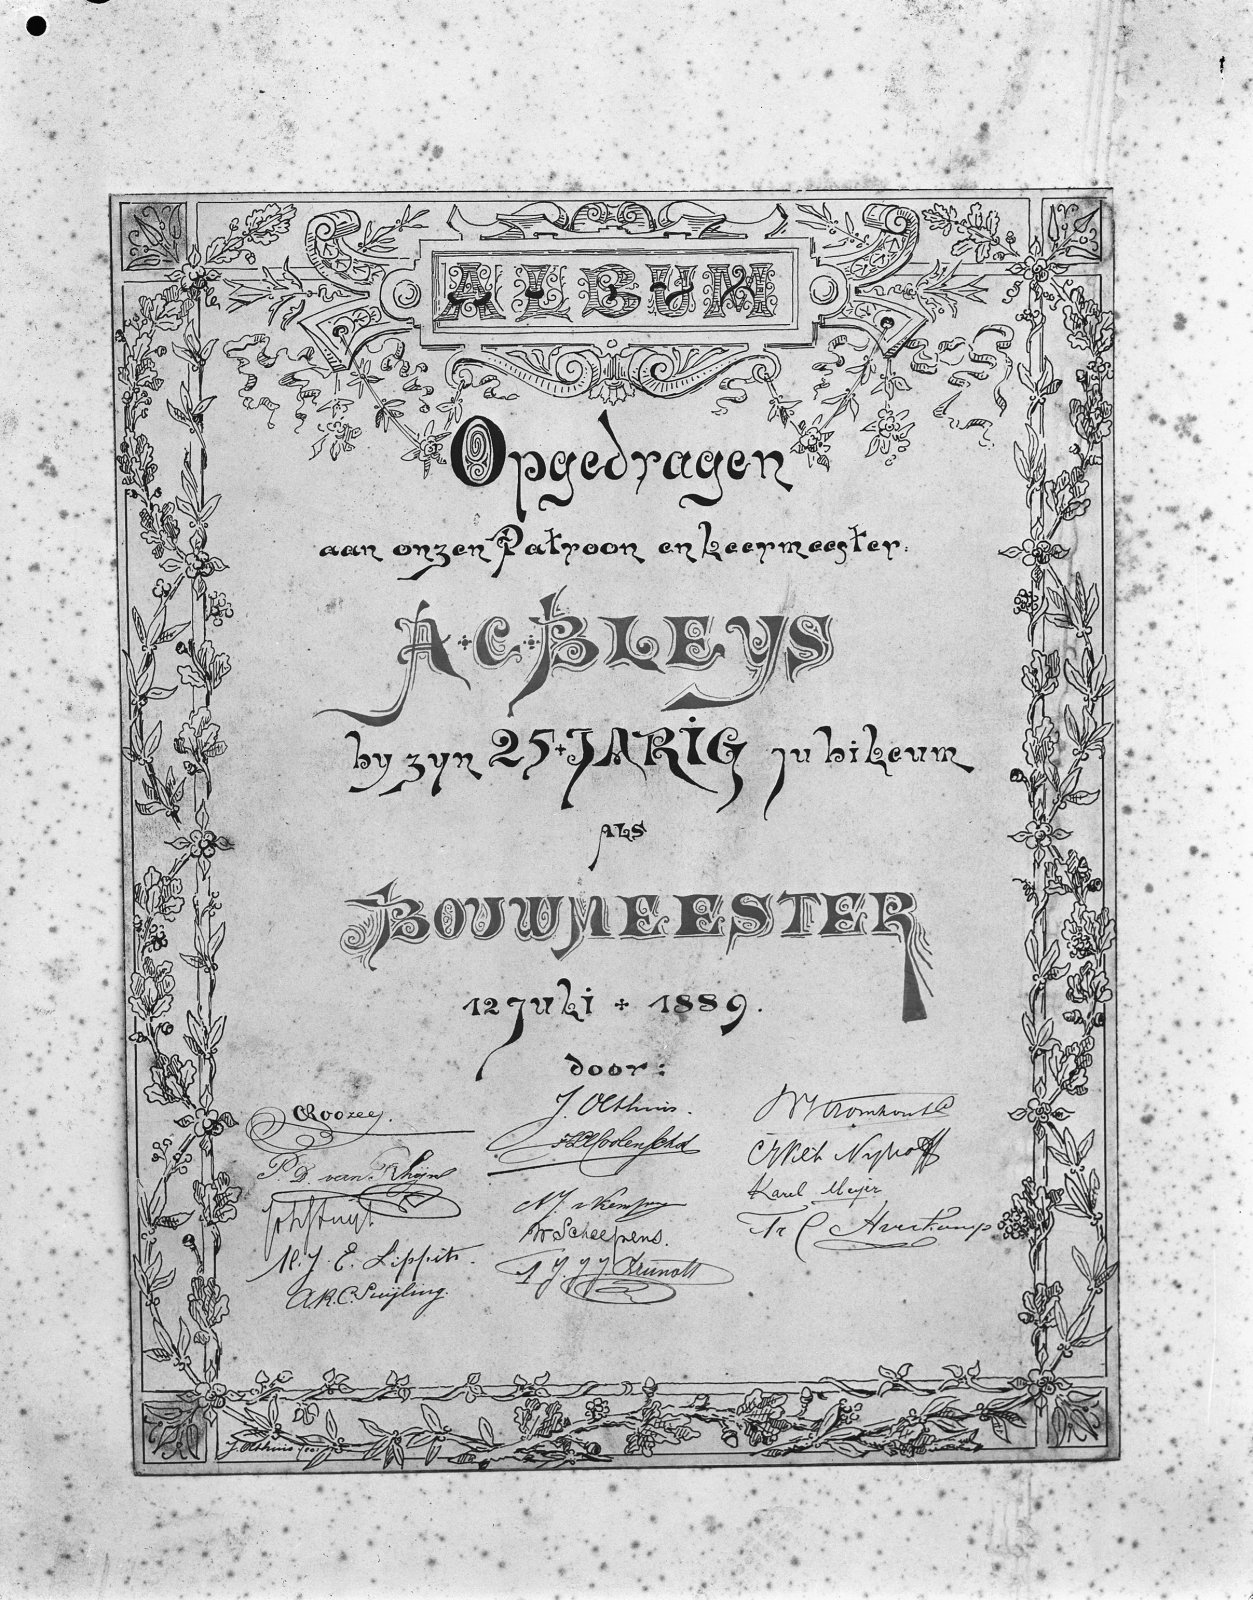 ALBUM
Opgedragen
aan onzen Patroon en leermeester:
A.C. BLEYS
by zyn 25 JARIG jubileum
ALS
BOUWMEESTER
12 Juli + 1889.
door:
C Roozey.
P. D. van Rhijn
A. J. E. Lippits.
A.R.C. Suijling.
J. Olthuis.
W Scheepens.
Nyhoff
Karel Meijer
J. Olthuis